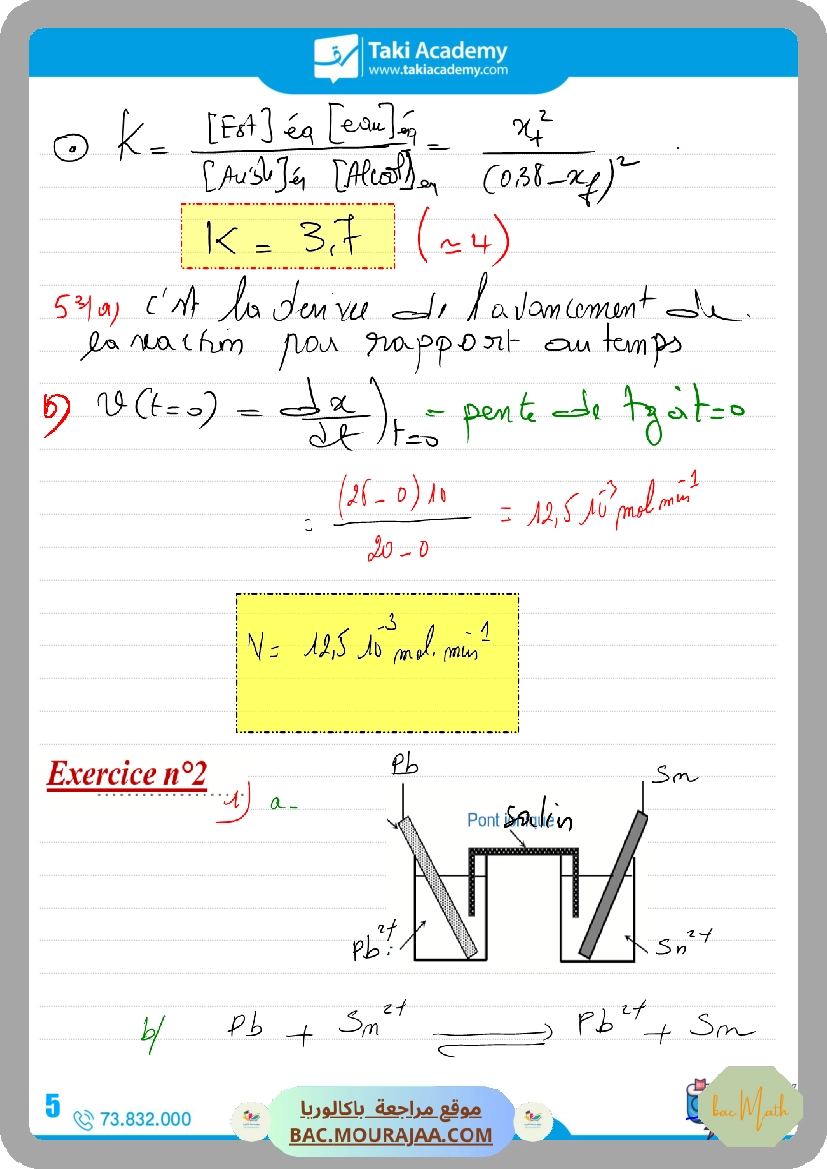 Taki Academy
www.takiacademy.com
K = [Est]éq [eau]éq / [Acide]éq [Alcool]éq = xf² / (0,38 - xf)²
K = 3,7 (≃ 4)
5°/a) c'st la derivee de l'avancement de
la reaction par rapport au temps
b) V(t=0) = dx/dt)t=0 = pente de tg à t=0
= (25 - 0) 10 / 20 - 0 = 12,5 10⁻³ mol min⁻¹
V = 12,5 10⁻³ mol. min⁻¹
Exercice n°2
1) a -
Pb
Sn
Pont salin
Pb²⁺
Sn²⁺
b/ Pb + Sn²⁺ ⇌ Pb²⁺ + Sn
5
73.832.000
موقع مراجعة باكالوريا
BAC.MOURAJAA.COM
bac Math